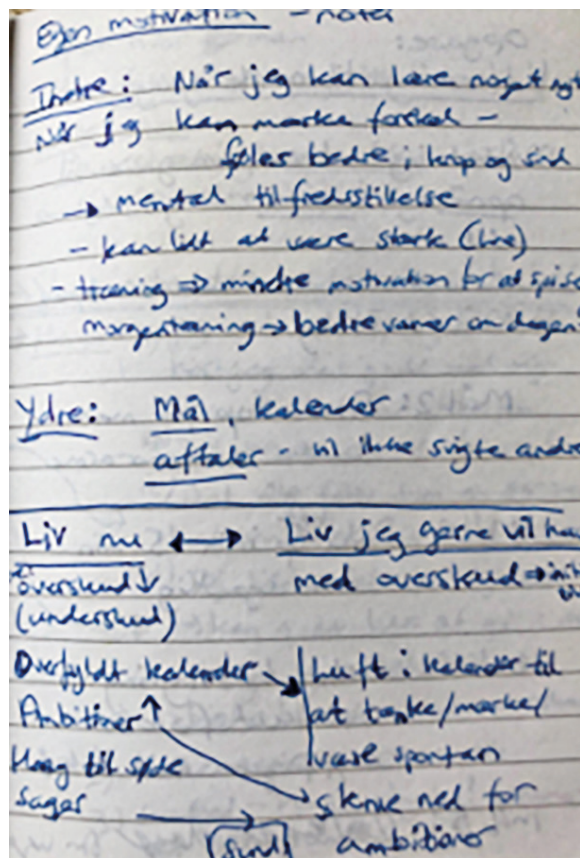 Egen motivation - noter
Indre: Når jeg kan lære noget nyt
Når jeg kan mærke forskel -
føles bedre i krop og sind
→ mental tilfredsstikelse
- kan lidt at være stærk (
- træning ⇒ mindre motivation for at spise
morgentræning → bedre vaner om dagen
Ydre: Mål, kalender
aftaler - vil ikke svigte andre
Liv nu ↔ Liv jeg gerne vil ha
overskud ↓ med overskud ⇒
(underskud)
Overfyldt kalender → Luft i kalender til
Ambitiner ↑ at tænke/mærke/
være spontan
Hang til søde
sager → skrue ned for
(sund) ambitioner